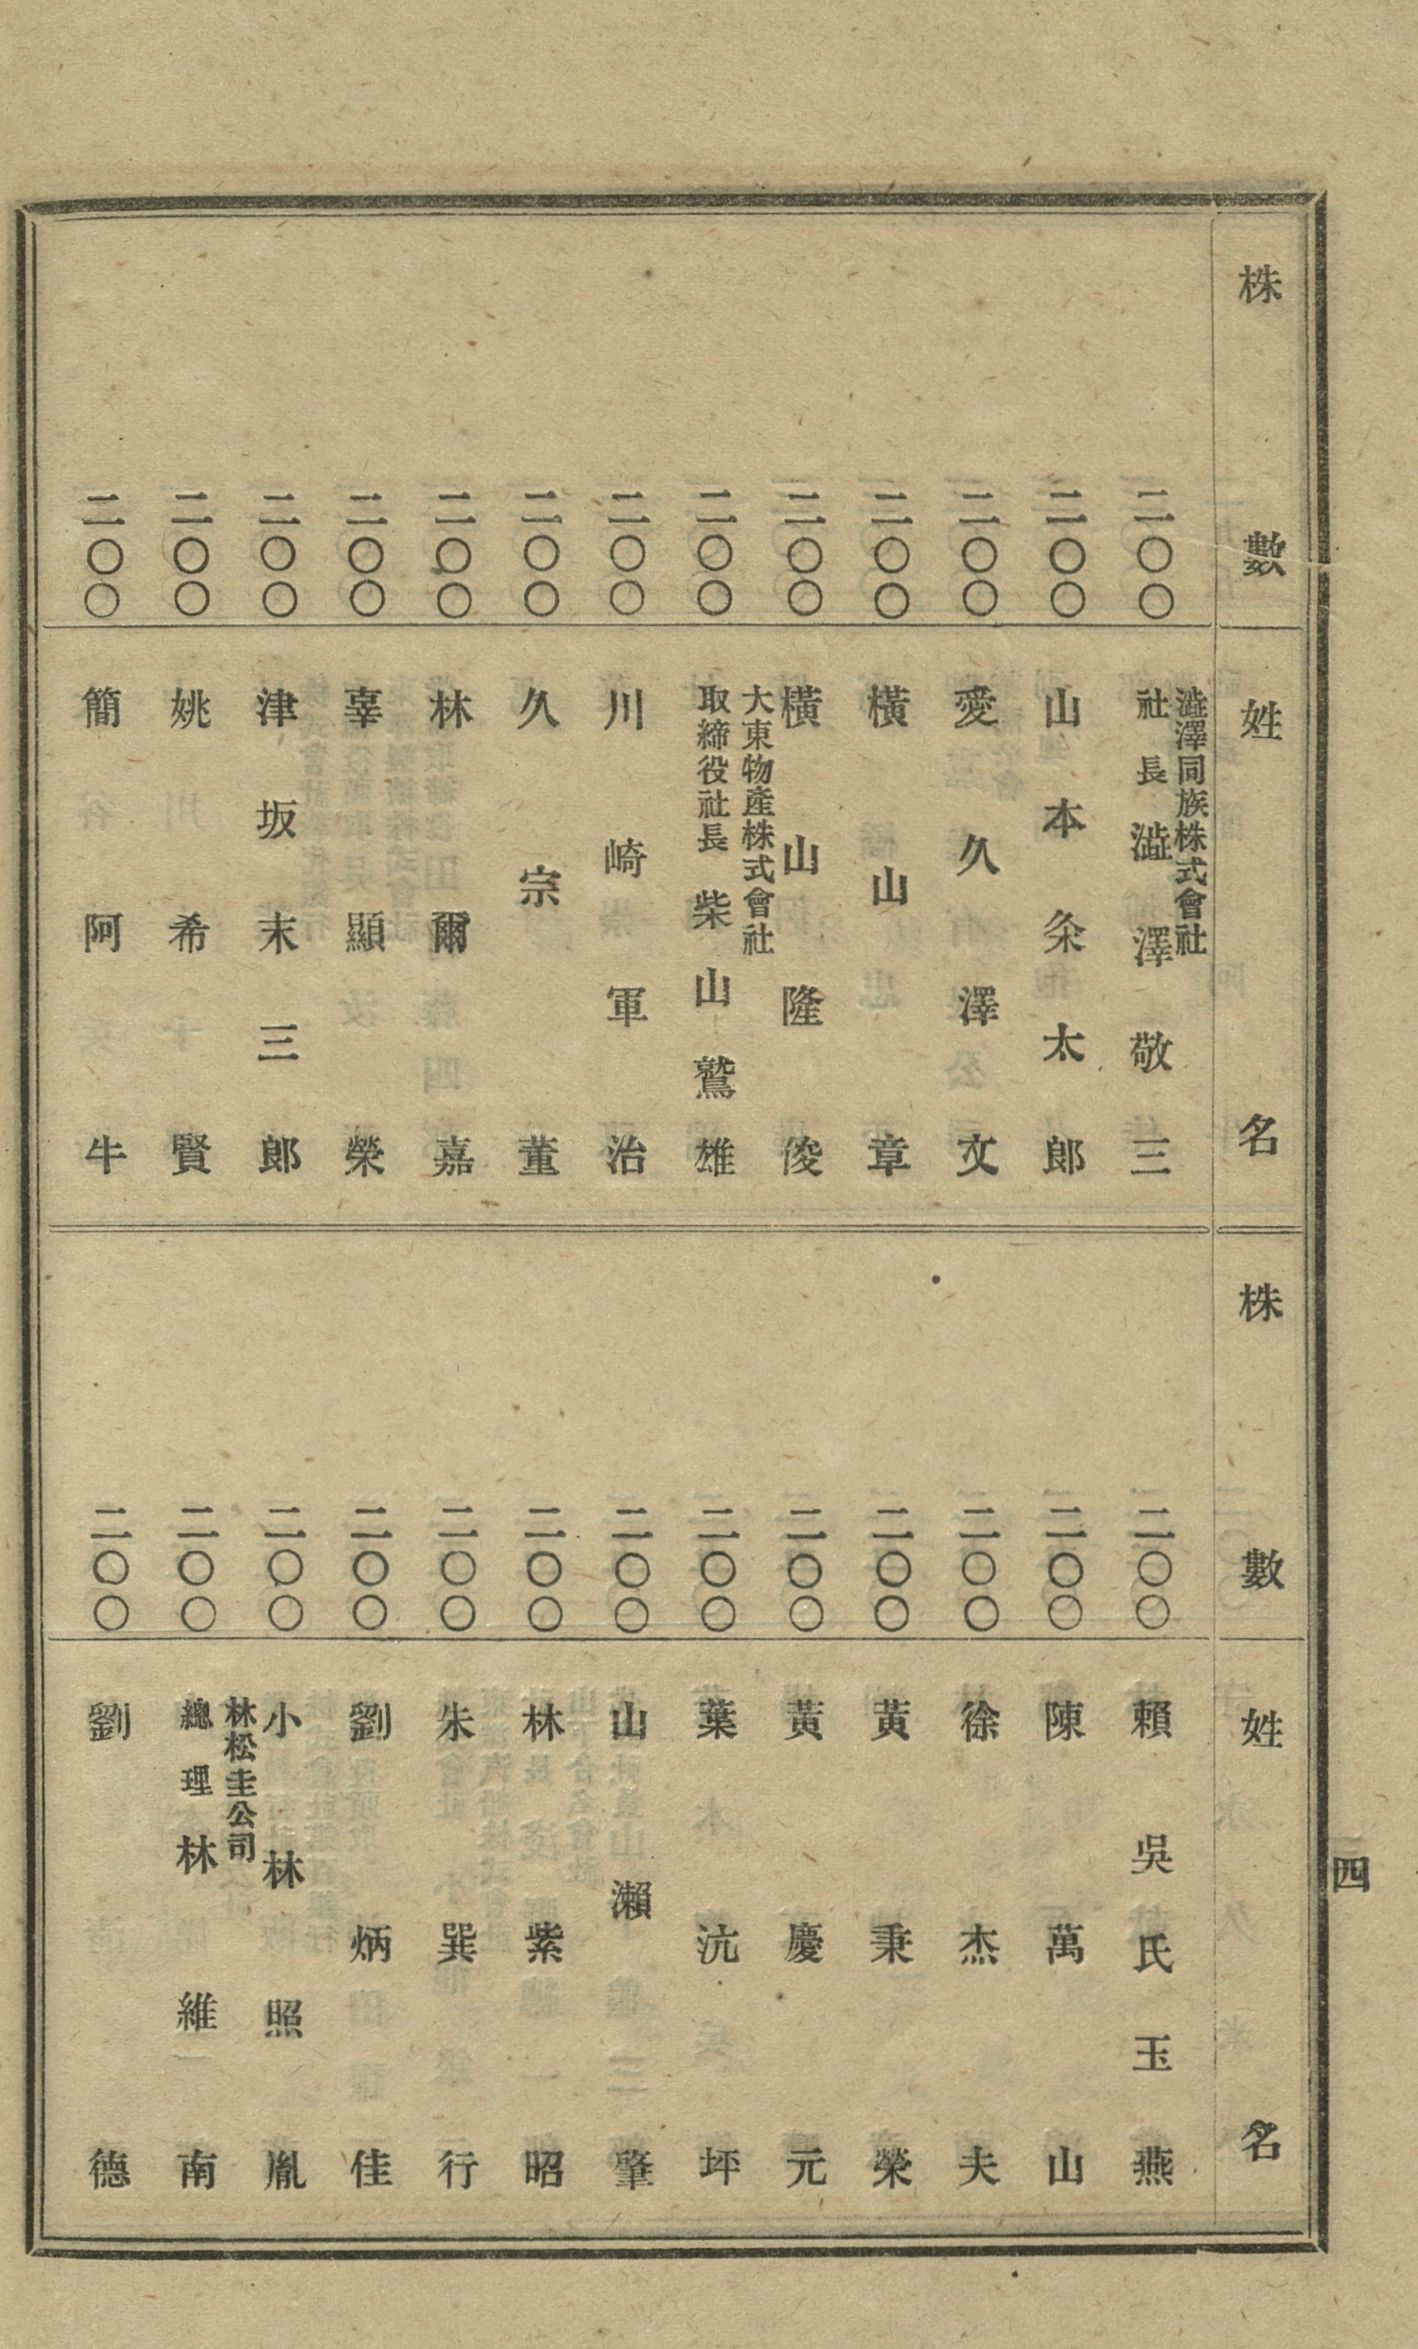 株數 姓名
二〇〇 澁澤同族株式會社 社長 澁澤敬三
二〇〇 山本粂太郎
二〇〇 愛久澤文
二〇〇 横山章
二〇〇 横山隆俊
二〇〇 大東物產株式會社 取締役社長 柴山鷲雄
二〇〇 川崎軍治
二〇〇 久宗董
二〇〇 林爾嘉
二〇〇 辜顯榮
二〇〇 津坂末三郎
二〇〇 姚希賢
二〇〇 簡阿牛
株數 姓名
二〇〇 賴吳氏玉燕
二〇〇 陳萬山
二〇〇 徐杰夫
二〇〇 黃秉榮
二〇〇 黃慶元
二〇〇 葉沆坪
二〇〇 山瀨肇
二〇〇 林紫昭
二〇〇 朱巽行
二〇〇 劉炳佳
二〇〇 小林照胤
二〇〇 林松圭公司 總理 林維南
二〇〇 劉德
四